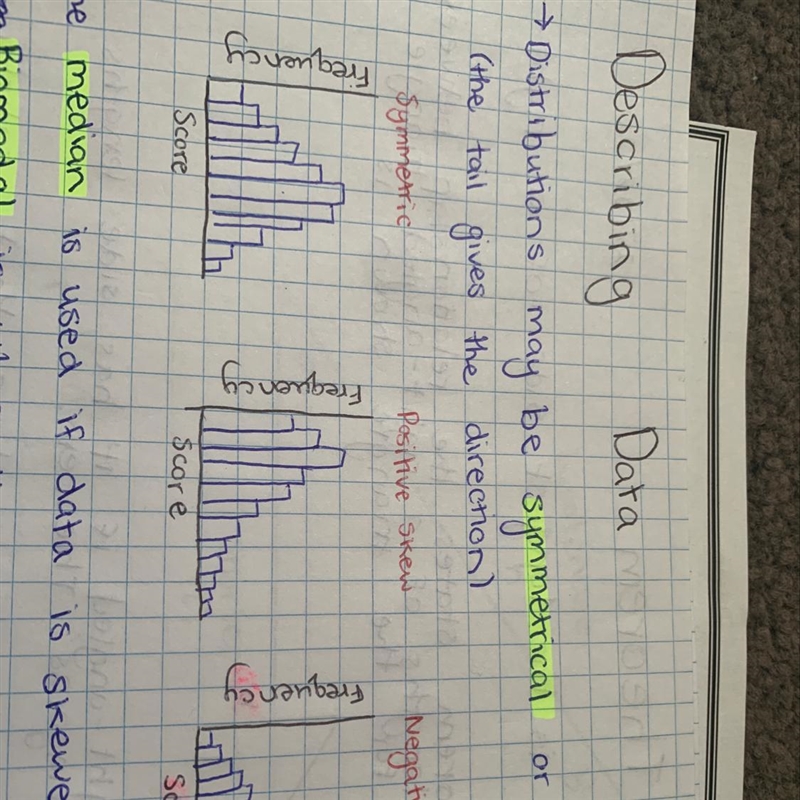 Describing Data
→ Distributions may be symmetrical or
(the tail gives the direction)
Symmetric Positive skew Negati
Frequency Frequency Frequency
Score Score Sc
he median is used if data is skewe
Bimodal is